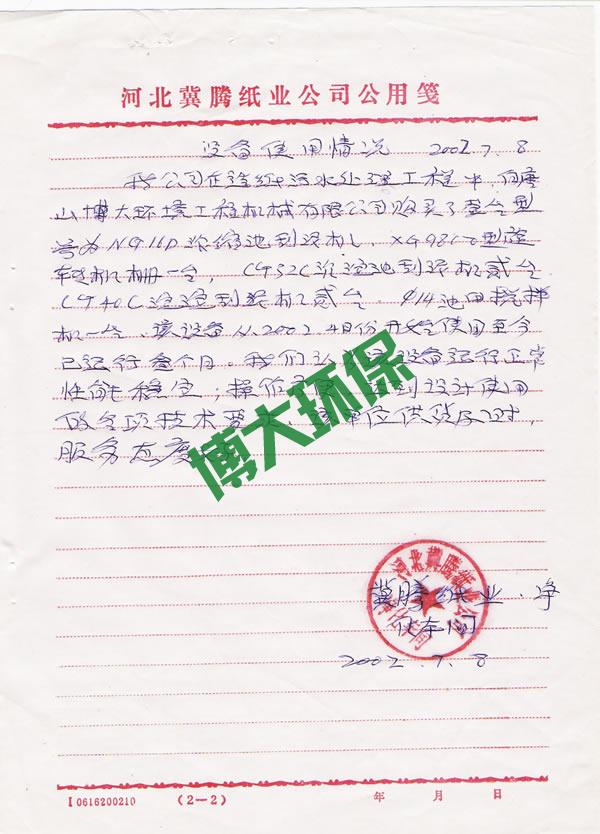 河北冀腾纸业公司公用笺
设备使用情况 2002.7.8
我公司在造纸污水处理工程中，向唐
山博大环境工程机械有限公司购买了壹台型
号为NG16D浓缩池刮泥机、XG980型旋
转机栅一台，CG52C沉淀池刮泥机贰台
CG40C沉淀刮泥机贰台. φ14池用搅拌
机一台，该设备从2002.4月份开始使用至今
已运行叁个月。我们认为该设备运行正常
性能稳定；操作 达到设计使用
的各项技术要求。该单位供货及时，
服务态度
博大环保
河北冀腾纸业公司
冀腾纸业.净
化车间
2002.7.8
I 0616200210 (2—2) 年 月 日